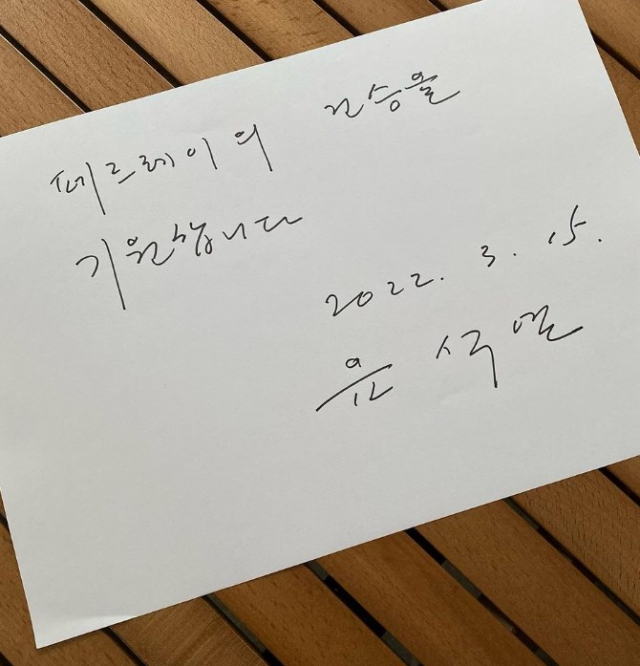 페르레이의 건승을
기원합니다
2022. 3. 15.
윤석열